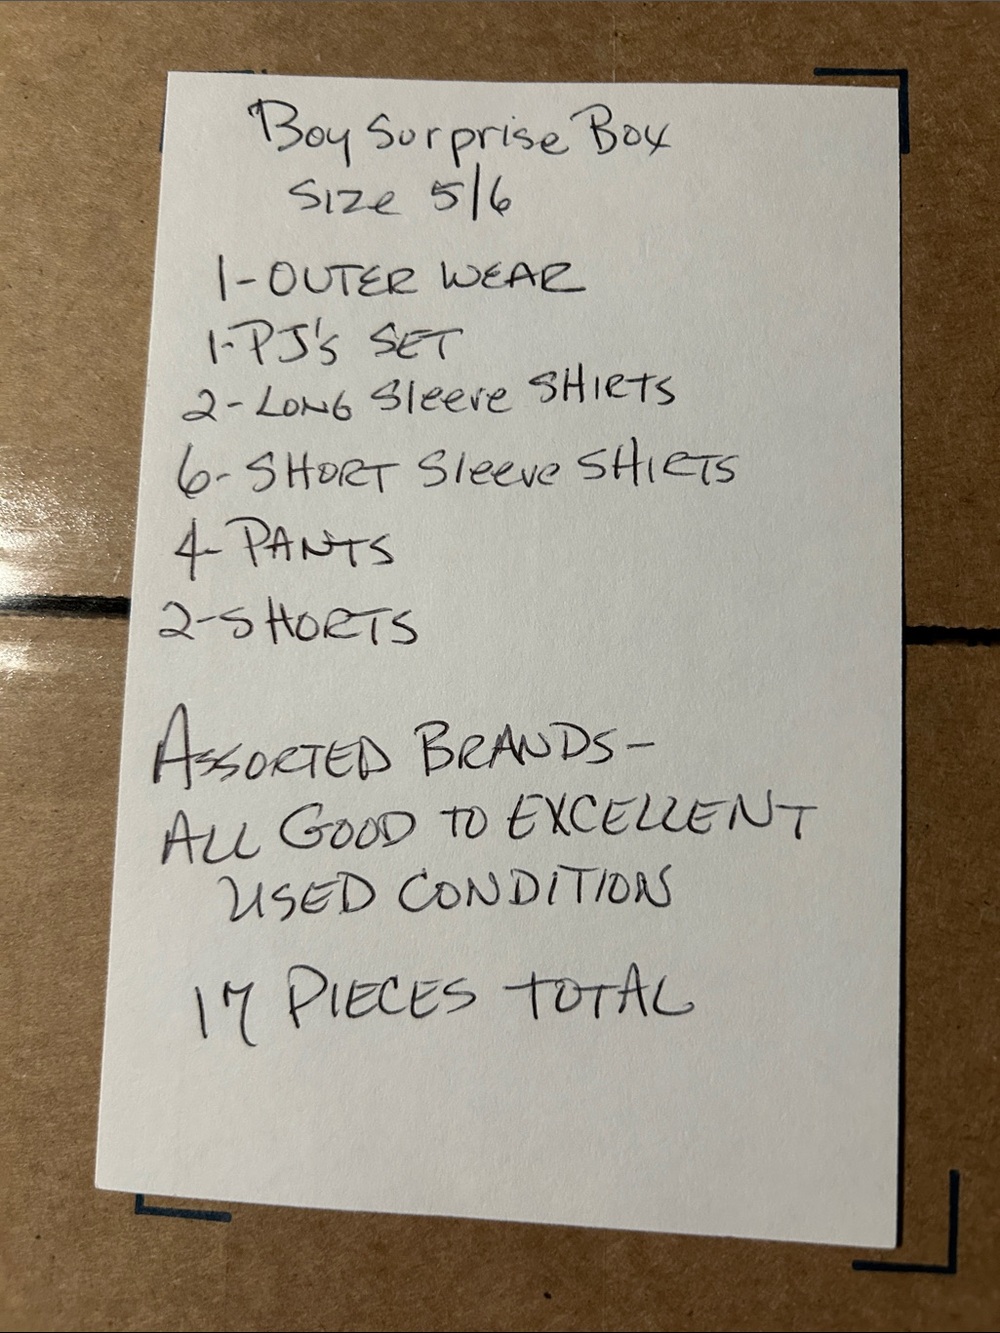 Boy Surprise Box
Size 5/6
1-OUTER WEAR
1-PJ's SET
2-LONG Sleeve SHIRTS
6-SHORT Sleeve SHIRTS
4-PANTS
2-SHORTS
ASSORTED BRANDS-
ALL GOOD TO EXCELLENT
USED CONDITION
17 PIECES TOTAL